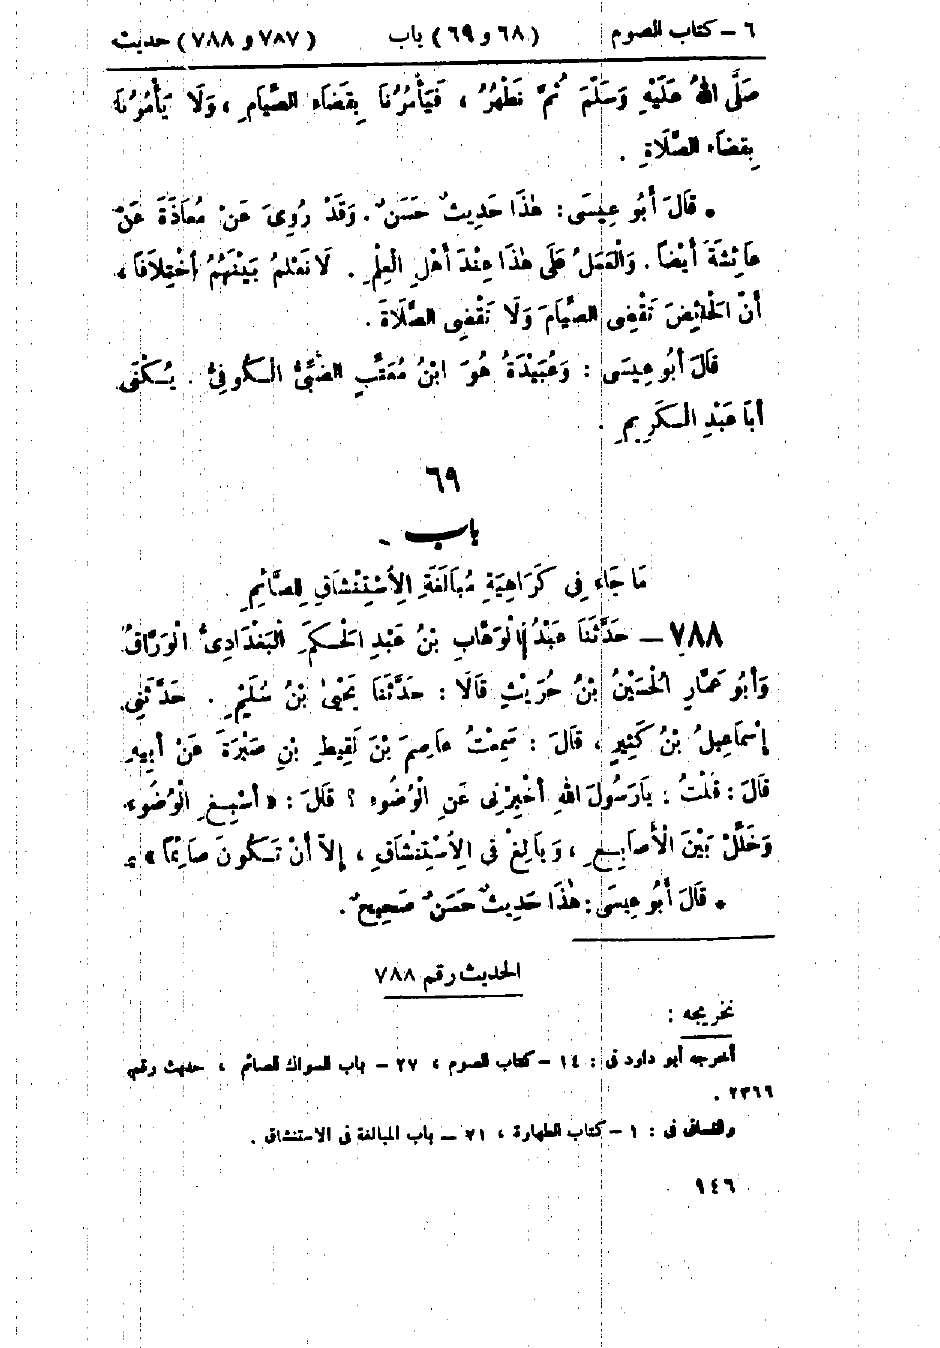 ٦ – كتاب الصوم (٦٨ و ٦٩) باب (٧٨٧ و ٧٨٨) حديث
صَلَّى اللهُ عَلَيْهِ وَسَلَّمَ ثُمَّ نَطْهُرُ ، فَيَأْمُرُنَا بِقَضَاءِ الصِّيَامِ ، وَلَا يَأْمُرُنَا
بِقضَاءِ الصَّلَاةِ .
• قَالَ أَبُو عِيسَى : هٰذَا حَدِيثٌ حَسَنٌ . وَقَدْ رُوِىَ عَنْ مُعَاذَةَ عَنْ
عَائِشَةَ أَيْضًا . وَالْعَمَلُ عَلَى هٰذَا عِنْدَ أَهْلِ الْعِلْمِ . لَا نَعْلمُ بَيْنَهُمُ اخْتِلَافًا ،
أَنَّ الْحَائِضَ تَقْضِى الصِّيَامَ وَلَا تَقْضِى الصَّلَاةَ .
قَالَ أَبُو عِيسَى : وَعُبَيْدَةُ هُوَ ابْنُ مُعَتِّبٍ الضَّبِّىُّ الْكُوفِىُّ . يُكْنَى
أَبَا عَبْدِ الْكَرِيمِ .
٦٩
باب
مَا جَاءَ فِى كَرَاهِيَةِ مُبَالَغَةِ الِاسْتِنْشَاقِ لِلصَّائِمِ
٧٨٨ – حَدَّثَنَا عَبْدُ الْوَهَّابِ بْنُ عَبْدِ الْحَكَمِ الْبَغْدَادِىُّ الْوَرَّاقُ
وَأَبُو عَمَّارٍ الْحُسَيْنُ بْنُ حُرَيْثٍ قَالَا : حَدَّثَنَا يَحْيىٰ بْنُ سُلَيْمٍ . حَدَّثَنِى
إِسْمَاعِيلُ بْنُ كَثِيرٍ ، قَالَ : سَمِعْتُ عَاصِمَ بْنَ لَقِيطِ بْنِ صَبْرَةَ عَنْ أَبِيهِ
قَالَ : قُلْتُ : يَارَسُولَ اللهِ أَخْبِرْنِى عَنِ الْوُضُوءِ ؟ قَالَ : « أَسْبِغِ الْوُضُوءَ
وَخَلِّلْ بَيْنَ الْأَصَابِعِ ، وَبَالِغْ فِى الِاسْتِنْشَاقِ ، إِلَّا أَنْ تَكُونَ صَائِمًا » .
• قَالَ أَبُو عِيسَى : هٰذَا حَدِيثٌ حَسَنٌ صَحِيحٌ .
الحديث رقم ٧٨٨
تخريجه :
أخرجه أبو داود فى : ١٤ – كتاب الصوم ، ٢٧ – باب السواك للصائم ، حديث رقم
٢٣٦٦ .
والنسائى فى : ١ – كتاب الطهارة ، ٧١ – باب المبالغة فى الاستنشاق .
١٤٦